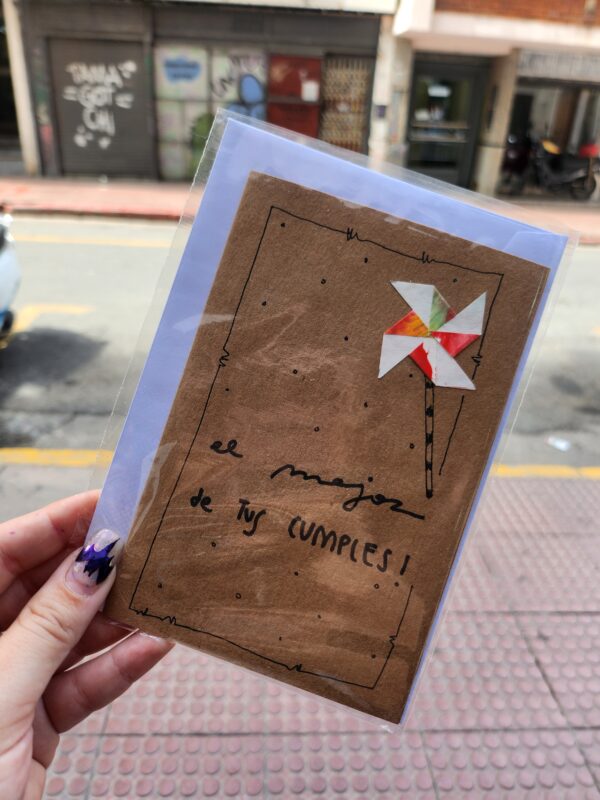 TANIA
GOT
CHI
el mejor
de Tus CUMPLES!